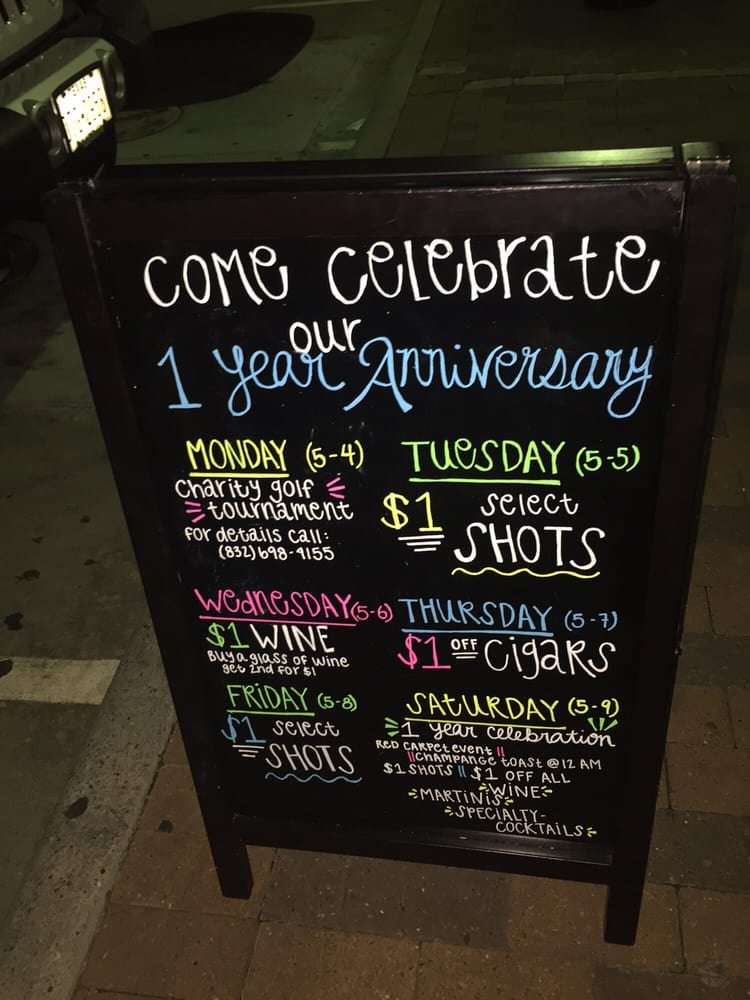 COME Celebrate
our
1 Year Anniversary
MONDAY (5-4)
Charity golf
tournament
for details call:
(832) 698-4155
TUeSDAY (5-5)
$1 select
SHOTS
WedNeSDAY (5-6)
$1 WINE
Buy a glass of wine
get 2nd for $1
THURSDAY (5-7)
$1 OFF cigars
FRiDAY (5-8)
$1 select
SHOTS
SATURDAY (5-9)
1 year celebration
RED CARPET event ||
|| CHAMPANGE toast @ 12 AM
$1 SHOTS || $1 OFF ALL
WINE
MARTINIS
SPECIALTY-
COCKTAILS